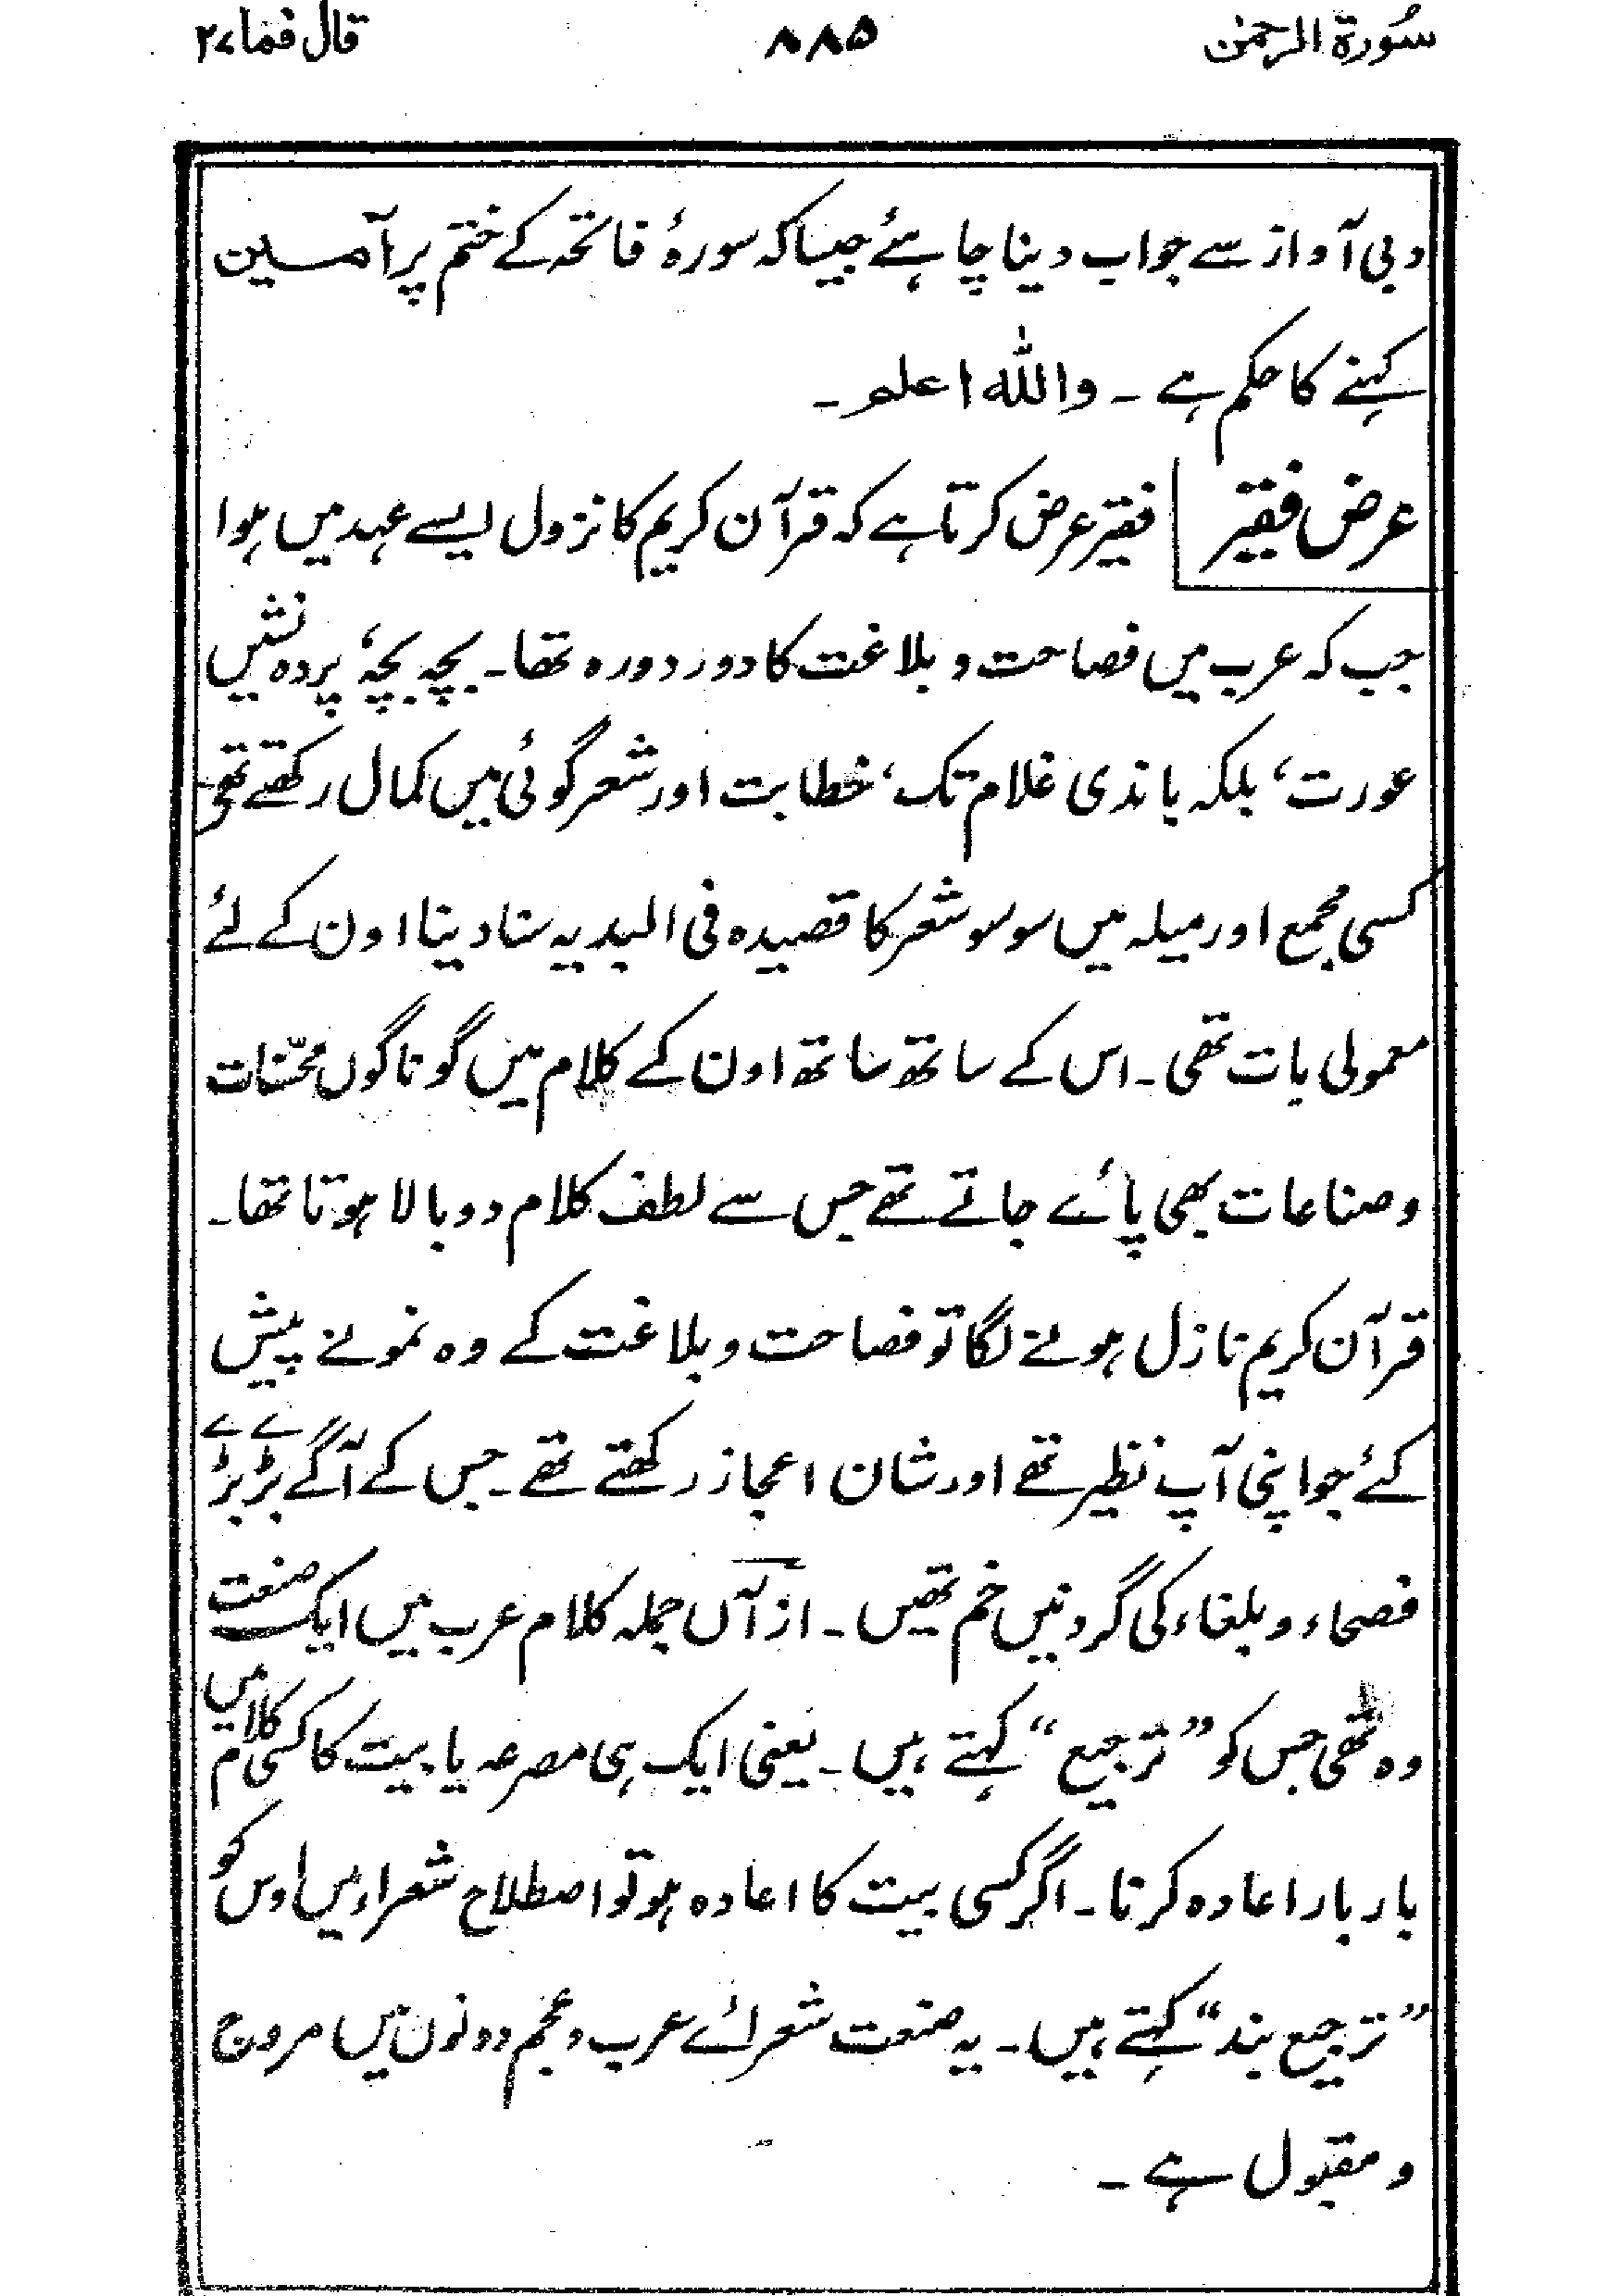 سُورة الرحمٰن ۸۸۵ قال فما ۲۷
دبی آواز سے جواب دینا چاہئے جیسا کہ سورۂ فاتحہ کے ختم پر آمین
کہنے کا حکم ہے ۔ واللہ اعلم ۔
عرض فقیر فقیر عرض کرتا ہے کہ قرآن کریم کا نزول ایسے عہد میں ہوا
جب کہ عرب میں فصاحت و بلاغت کا دور دورہ تھا۔ بچہ بچہ، پردہ نشیں
عورت، بلکہ باندی غلام تک، خطابت اور شعر گوئی میں کمال رکھتے تھے
کسی مجمع اور میلہ میں سو سو شعر کا قصیدہ فی البدیہ سنا دینا اون کے لئے
معمولی بات تھی ۔ اس کے ساتھ ساتھ اون کے کلام میں گوناگوں محسّنات
و صناعات بھی پائے جاتے تھے جس سے لطف کلام دوبالا ہوتا تھا ۔
قرآن کریم نازل ہونے لگا تو فصاحت و بلاغت کے وہ نمونے پیش
کئے جو اپنی آپ نظیر تھے اور شان اعجاز رکھتے تھے ۔ جس کے آگے بڑے بڑے
فصحاء و بلغاء کی گردنیں خم تھیں ۔ از آں جملہ کلام عرب میں ایک صنعت
وہ تھی جس کو ”ترجیع“ کہتے ہیں ۔ یعنی ایک ہی مصرعہ یا بیت کا کسی کلام میں
بار بار اعادہ کرنا ۔ اگر کسی بیت کا اعادہ ہو تو اصطلاح شعراء میں اوس کو
”ترجیع بند“ کہتے ہیں ۔ یہ صنعت شعرائے عرب و عجم دونوں میں مروج
و مقبول ہے ۔